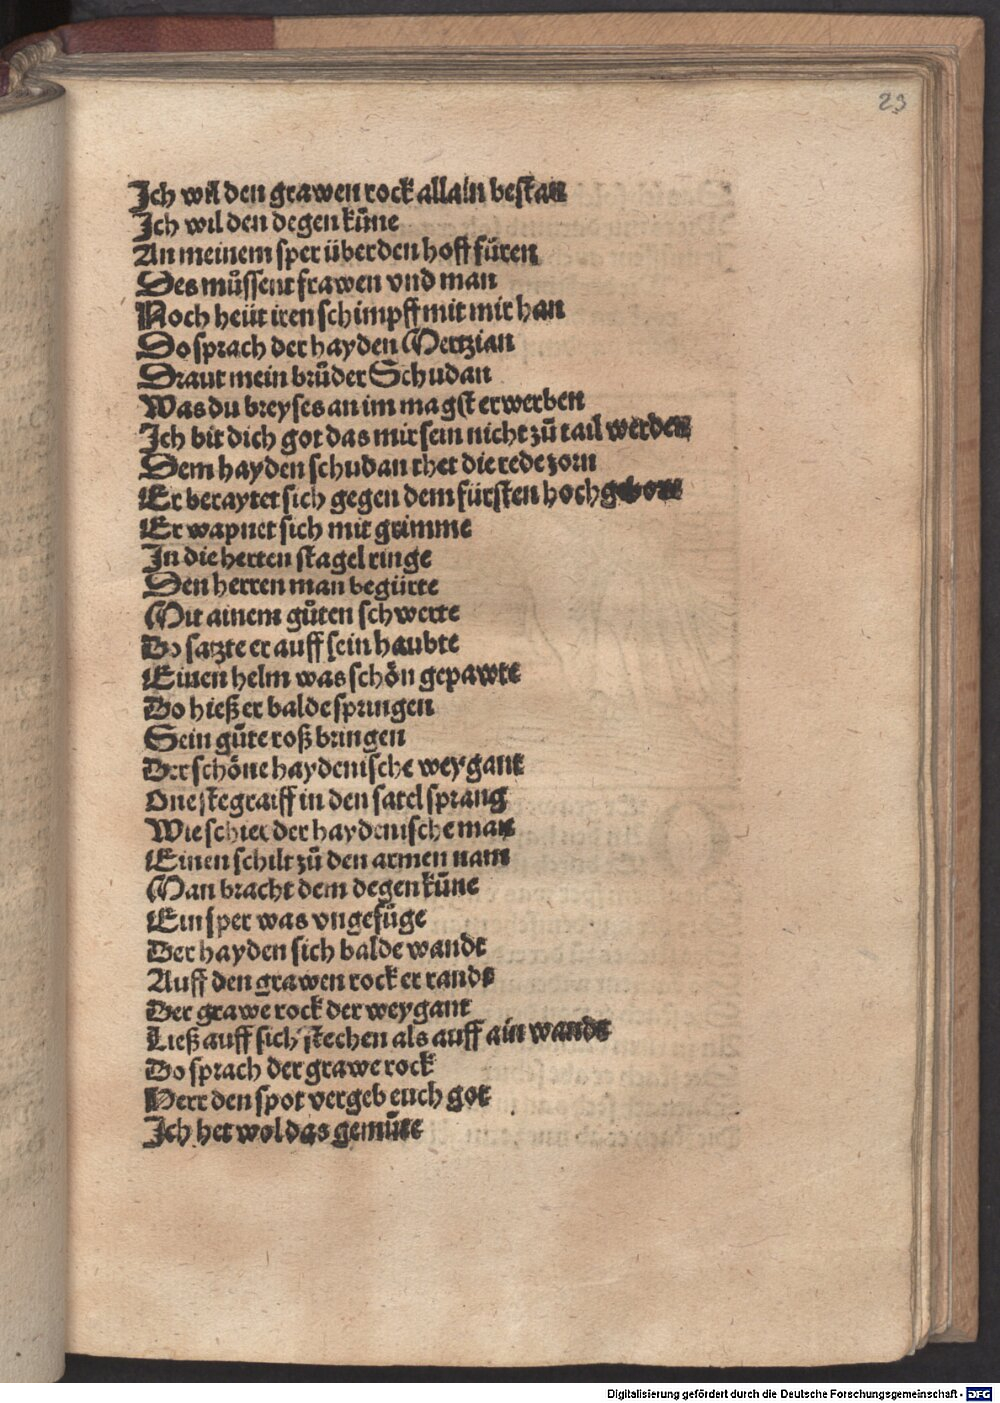 23
Ich wil den grawen rock allain bestan
Ich wil den degen kůne
An meinem sper über den hoff füren
Des můssent frawen vnd man
Noch heüt iren schimpff mit mir han
Do sprach der hayden Mertzian
Draut mein brůder Schudan
Was du breyses an im magst erwerben
Ich bit dich got das mir sein nicht zů tail werden
Dem hayden schudan thet die rede zorn
Er beraytet sich gegen dem fürsten hochgeborn
Er wapnet sich mit grimme
In die herten stagel ringe
Den herren man begürte
Mit ainem gůten schwerte
Do satzte er auff sein haubte
Einen helm was schön gepawte
Do hieß er balde springen
Sein gůte roß bringen
Der schöne haydenische weygant
One stegraiff in den satel sprang
Wie schier der haydenische man
Einen schilt zů den armen nam
Man bracht dem degen kůne
Ein sper was vngefüge
Der hayden sich balde wandt
Auff den grawen rock er rande
Der grawe rock der weygant
Ließ auff sich stechen als auff ain wandt
Do sprach der grawe rock
Herr den spot vergeb euch got
Ich het wol das gemůte
Digitalisierung gefördert durch die Deutsche Forschungsgemeinschaft - DFG